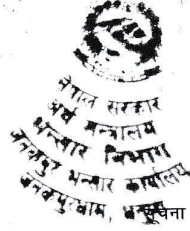 नेपाल सरकार
अर्थ मन्त्रालय
भन्सार विभाग
जनकपुर भन्सार कार्यालय
जनकपुरधाम, धनुषा
सूचना